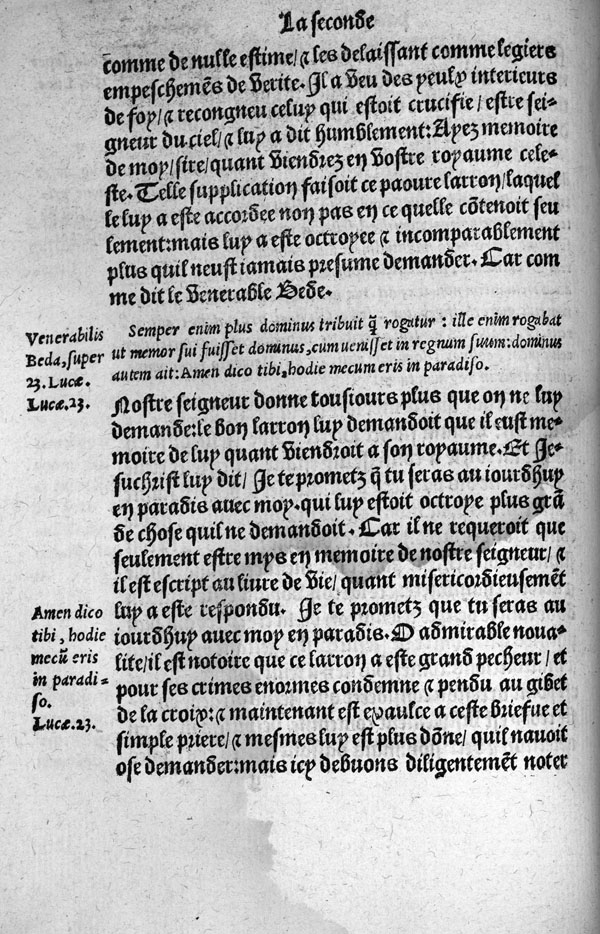 La seconde
comme de nulle estime/ ⁊ les delaissant comme legiers
empeschemẽs de verite. Il a veu des yeulx interieurs
de foy/ ⁊ recongneu celuy qui estoit crucifie/ estre sei-
gneur du ciel/ ⁊ luy a dit humblement: Ayez memoire
de moy/ sire/ quant viendrez en vostre royaume cele-
ste. Telle supplication faisoit ce paoure larron/ laquel
le luy a este accordee non pas en ce quelle cõtenoit seu
lement: mais luy a este octroyee ⁊ incomparablement
plus quil neust iamais presume demander. Car com
me dit le venerable Bede.
Venerabilis
Beda, super
23. Lucæ.
Lucæ. 23.
Semper enim plus dominus tribuit q̃ rogatur : ille enim rogabat
ut memor sui fuisset dominus, cum uenisset in regnum suum: dominus
autem ait: Amen dico tibi, hodie mecum eris in paradiso.
Nostre seigneur donne tousiours plus que on ne luy
demande: le bon larron luy demandoit que il eust me-
moire de luy quant viendroit a son royaume. Et Je-
suchrist luy dit/ Je te prometz q̃ tu seras au iourdhuy
en paradis avec moy. qui luy estoit octroye plus grã
de chose quil ne demandoit. Car il ne requeroit que
seulement estre mys en memoire de nostre seigneur/ ⁊
il est escript au livre de vie/ quant misericordieusemẽt
luy a este respondu. Je te prometz que tu seras au
iourdhuy avec moy en paradis. O admirable noua-
lite/ il est notoire que ce larron a este grand pecheur/ et
pour ses crimes enormes condemne ⁊ pendu au gibet
de la croix: ⁊ maintenant est exaulce a ceste briefue et
simple priere/ ⁊ mesmes luy est plus dõne/ quil navoit
ose demander: mais icy debuons diligentemẽt noter
Amen dico
tibi, hodie
mecũ eris
in paradi-
so.
Lucæ. 23.